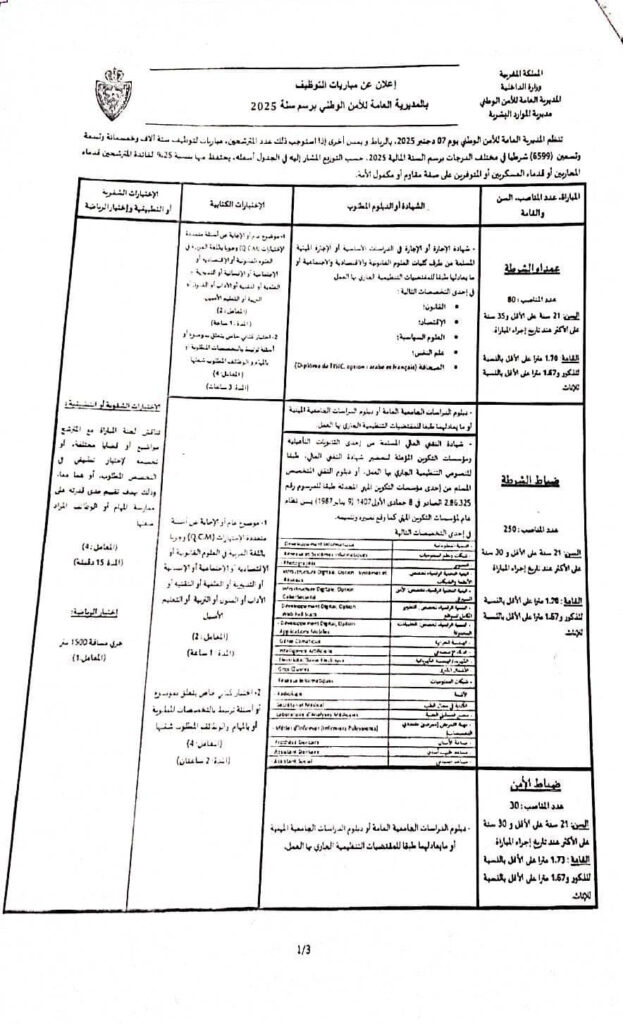 المملكة المغربية
وزارة الداخلية
المديرية العامة للأمن الوطني
مديرية الموارد البشرية
إعلان عن مباريات التوظيف
بالمديرية العامة للأمن الوطني برسم سنة 2025
تنظم المديرية العامة للأمن الوطني يوم 07 دجنبر 2025، بالرباط و بمدن أخرى إذا استوجب ذلك عدد المترشحين، مباريات لتوظيف ستة آلاف وخمسمائة وتسعة
وتسعين (6599) شرطيا في مختلف الدرجات برسم السنة المالية 2025، حسب التوزيع المشار إليه في الجدول أسفله، يحتفظ منها بنسبة 25% لفائدة المترشحين قدماء
المحاربين أو قدماء العسكريين أو المتوفرين على صفة مقاوم أو مكفول الأمة.
المباراة، عدد المناصب، السن
والقامة
الشهادة أو الدبلوم المطلوب
الاختبارات الكتابية
الاختبارات الشفوية
أو التطبيقية واختبار الرياضة
عمداء الشرطة
عدد المناصب : 80
السن: 21 سنة على الأقل و35 سنة
على الأكثر عند تاريخ إجراء المباراة.
القامة: 1.70 مترا على الأقل بالنسبة
للذكور و1.67 مترا على الأقل بالنسبة
للإناث.
- شهادة الإجازة أو الإجازة في الدراسات الأساسية أو الإجازة المهنية
المسلمة من طرف كليات العلوم القانونية والاقتصادية والاجتماعية أو
ما يعادلها طبقا للمقتضيات التنظيمية الجاري بها العمل.
في إحدى التخصصات التالية :
• القانون؛
• الاقتصاد؛
• العلوم السياسية؛
• علم النفس؛
• الصحافة (Diplôme de l'ISIC, option : arabe et français)
1- موضوع عام أو الإجابة عن أسئلة متعددة
الاختيارات (Q.C.M) وجوبا باللغة العربية في
العلوم القانونية أو الاقتصادية أو
الاجتماعية أو الإنسانية أو التدبيرية
(المعامل : 2)
(المدة : 1 ساعة)
2- اختبار كتابي خاص يتعلق بموضوع أو
أسئلة ترتبط بالتخصصات المطلوبة أو
بالمهام و الوظائف المطلوب شغلها
(المعامل : 4)
(المدة 3 ساعات)
ضباط الشرطة
عدد المناصب : 250
السن: 21 سنة على الأقل و 30 سنة
على الأكثر عند تاريخ إجراء المباراة
القامة: 1.70 مترا على الأقل بالنسبة
للذكور و1.67 مترا على الأقل بالنسبة
للإناث.
- دبلوم الدراسات الجامعية العامة أو دبلوم الدراسات الجامعية المهنية
أو ما يعادلهما طبقا للمقتضيات التنظيمية الجاري بها العمل.
- شهادة التقني العالي المسلمة من إحدى الثانويات التأهيلية
ومؤسسات التكوين المؤهلة لتحضير شهادة التقني العالي، طبقا
للنصوص التنظيمية الجاري بها العمل، أو دبلوم التقني المتخصص
المسلم من إحدى مؤسسات التكوين المهني المحدثة طبقا للمرسوم رقم
2.86.325 الصادر في 8 جمادى الأولى 1407 (9 يناير 1987) بسن نظام
عام لمؤسسات التكوين المهني كما وقع تغييره وتتميمه.
في إحدى التخصصات التالية
Développement Informatique
Réseaux et Systèmes Informatiques
Photographie
Infrastructure Digitale, Option : Systèmes et
Réseaux
Infrastructure Digitale, Option
CyberSécurité
Développement Digital, Option
Web Full Stack
Développement Digital, Option
Applications Mobiles
Génie Climatique
Intelligence Artificielle
Gros Œuvres
Radiologie
Secrétariat Médical
Laboratoire d'Analyses Médicales
Prothèse Dentaire
Assistant Dentaire
Assistant Social
1- موضوع عام أو الإجابة عن أسئلة
متعددة الاختيارات (Q.C.M) وجوبا
باللغة العربية في العلوم القانونية أو
الاقتصادية أو الاجتماعية أو الإنسانية
أو التدبيرية أو العلمية أو التقنية أو
الآداب أو الفنون أو التربية أو التعليم
الأصيل
(المعامل : 2)
(المدة : 1 ساعة)
2- اختبار كتابي خاص يتعلق بموضوع
أو أسئلة ترتبط بالتخصصات المطلوبة
أو بالمهام والوظائف المطلوب شغلها
(المعامل : 4)
(المدة : 2 ساعتان)
الاختبارات الشفوية أو التطبيقية :
تناقش لجنة المباراة مع المترشح
مواضيع أو قضايا مختلفة، أو
تخضعه لاختبار تطبيقي في
التخصص المطلوب، أو هما معا،
وذلك بهدف تقييم مدى قدرته على
ممارسة المهام أو الوظائف المراد
شغلها
(المعامل : 4)
(المدة 15 دقيقة)
اختبار الرياضة:
جري مسافة 1500 متر
(المعامل : 1)
ضباط الأمن
عدد المناصب : 30
السن: 21 سنة على الأقل و 30 سنة
على الأكثر عند تاريخ إجراء المباراة.
القامة : 1.73 مترا على الأقل بالنسبة
للذكور و1.67 مترا على الأقل بالنسبة
للإناث.
- دبلوم الدراسات الجامعية العامة أو دبلوم الدراسات الجامعية المهنية
أو ما يعادلهما طبقا للمقتضيات التنظيمية الجاري بها العمل.
1/3